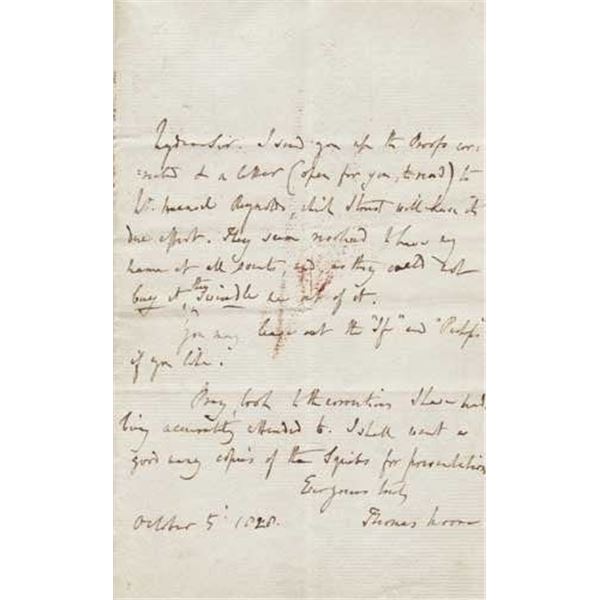 My dear Sir. I send you up the Proofs cor-
=rected & a letter (open for you to read) to
Mr. Mansel Reynolds, which I trust will have its
due effect. They seem resolved to have my
name at all events, and, as they could not
buy it, they swindle me out of it.
You may leave out the "If" and "Perhaps"
if you like.
Pray, look to the corrections I have made
being accurately attended to. I shall want a
good many copies of the Squibs for presentation
Ever yours truly
October 5th 1828. Thomas Moore